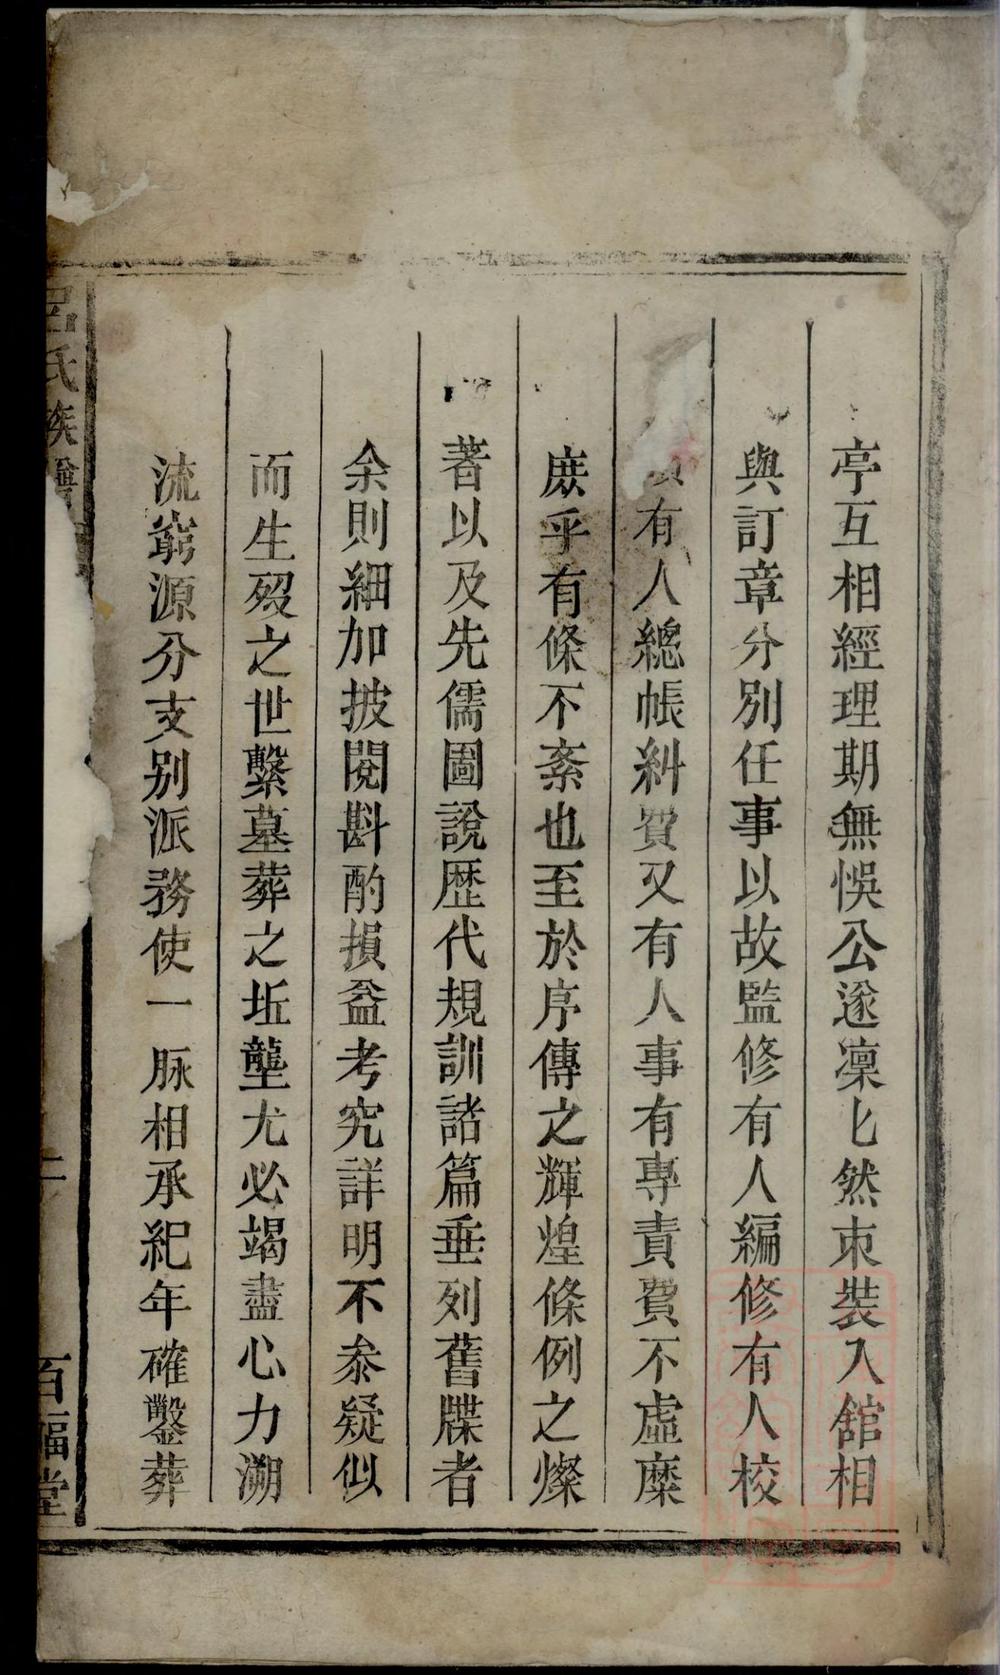 亭互相經理期無悞公遂凜匕然束裝入舘相
與訂章分別任事以故監修有人編修有人校
有人總帳糾費又有人事有專責費不虛糜
庻乎有條不紊也至於序傳之輝煌條例之燦
著以及先儒圖說歴代規訓諸篇垂列舊牒者
余則細加披閱斟酌損益考究詳明不叅疑似
而生殁之世繫墓葬之坵壟尤必竭盡心力溯
流窮源分支别派務使一脉相承紀年確鑿葬
呂氏族譜
百福堂